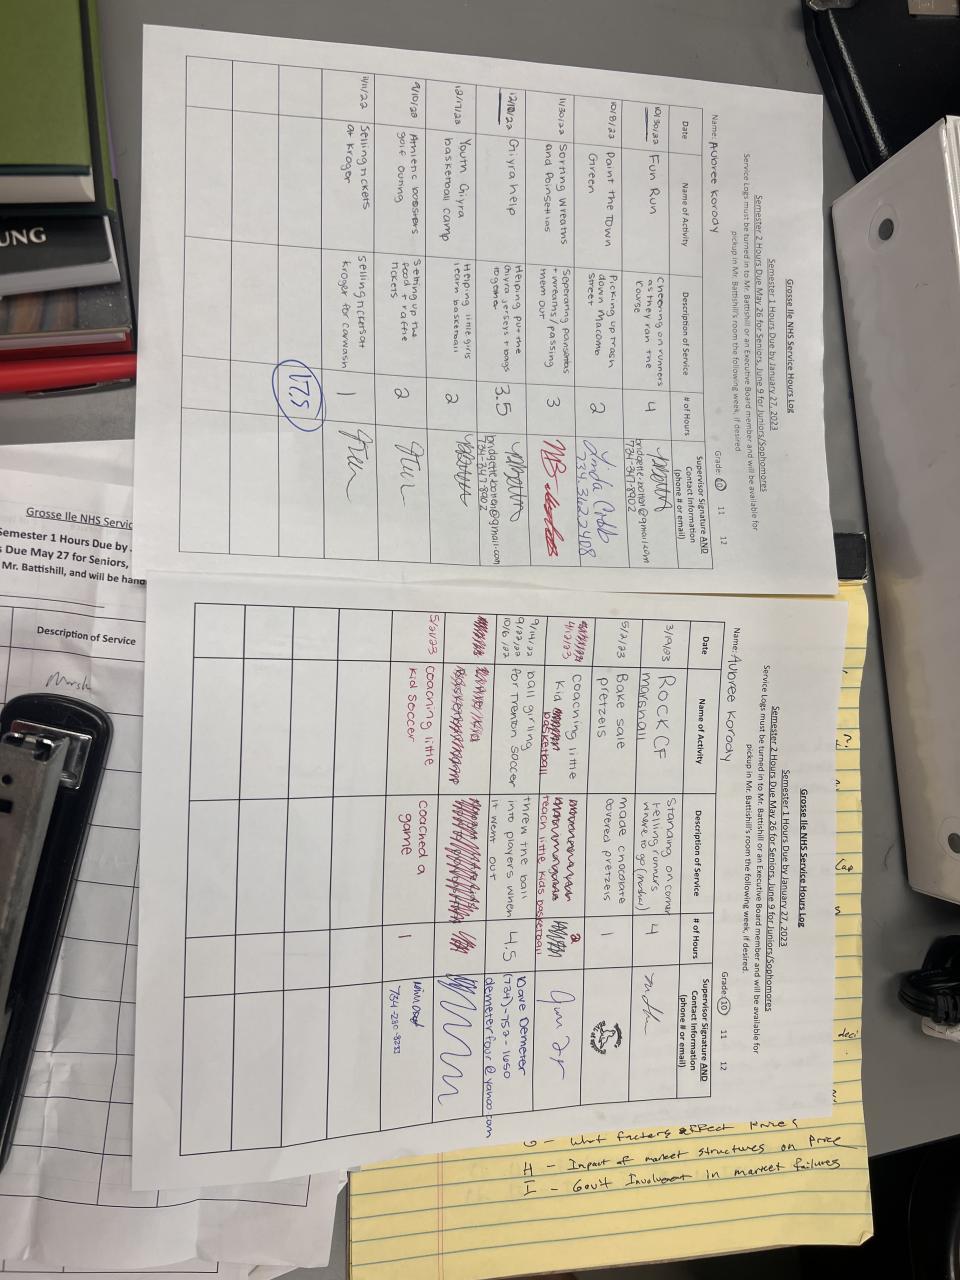 Grosse Ile NHS Service Hours Log
Semester 1 Hours Due by January 27, 2023
Semester 2 Hours Due May 26 for Seniors, June 9 for Juniors/Sophomores
Service Logs must be turned in to Mr. Battishill or an Executive Board member and will be available for
pickup in Mr. Battishill's room the following week, if desired.
Name: Aubree Korody
Grade: 10 11 12
Date
Name of Activity
Description of Service
# of Hours
Supervisor Signature AND
Contact Information
(phone # or email)
10/30/22
Fun Run
Cheering on runners
as they ran the
course
4
bridgette.batten@gmail.com
734-347-8902
10/8/22
Paint the Town
Green
Picking up trash
down Macomb
street
2
Linda Cobb
11/30/22
Sorting Wreaths
and Poinsettias
+ wreaths/passing
them out
3
12/10/22
Giyra help
Helping put the
Giyra jerseys + bags
together
3.5
bridgette.batten@gmail.com
734-347-8902
12/17/22
Youth Giyra
basketball camp
Helping little girls
learn basketball
2
9/10/22
Athletic boosters
golf outing
Setting up the
food + raffle
tickets
2
11/11/22
Selling tickets
at Kroger
selling tickets at
Kroger for carwash
1
17.5
Grosse Ile NHS Service Hours Log
Semester 1 Hours Due by January 27, 2023
Semester 2 Hours Due May 26 for Seniors, June 9 for Juniors/Sophomores
Service Logs must be turned in to Mr. Battishill or an Executive Board member and will be available for
pickup in Mr. Battishill's room the following week, if desired.
Name: Aubree Korody
Grade: 10 11 12
Date
Name of Activity
Description of Service
# of Hours
Supervisor Signature AND
Contact Information
(phone # or email)
3/19/23
ROCK CF
marshall
Standing on corner
telling runners
where to go
4
5/2/23
Bake sale
pretzels
made chocolate
covered pretzels
1
4/12/23
coaching little
kid basketball
teach little kids basketball
2
9/14/22
9/22/22
10/6/22
ball girling
for Trenton Soccer
threw the ball
into players when
it went out
4.5
Dave Demeter
(734)-752-1650
demeterfour@yahoo.com
5/21/23
coaching little
kid soccer
coached a
game
1
734-280-8233
UNG
Grosse Ile NHS Servic
Semester 1 Hours Due by
s Due May 27 for Seniors,
Mr. Battishill, and will be hand
Description of Service
Marsh
G - What factors affect Prices
H - Impact of market structures on Price
I - Gov't Involvement in market failures